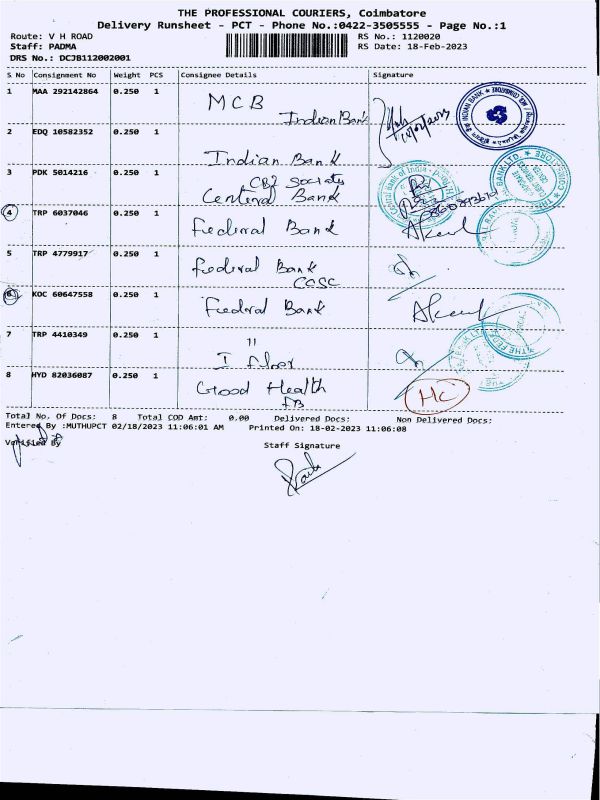 THE PROFESSIONAL COURIERS, Coimbatore
Delivery Runsheet - PCT - Phone No.:0422-3505555 - Page No.:1
Route: V H ROAD
RS No.: 1120020
Staff: PADMA
RS Date: 18-Feb-2023
DRS No.: DCJB112002001
S No Consignment No Weight PCS Consignee Details Signature
1 MAA 292142864 0.250 1 MCB
Indian Bank
2 EDQ 10582352 0.250 1
Indian Bank
CBI Society
3 PDK 5014216 0.250 1 Centeral Bank
4 TRP 6037046 0.250 1 Fediral Bank
5 TRP 4779917 0.250 1 Federal Bank
CCSC
6 KOC 60647558 0.250 1 Fuedral Bank
7 TRP 4410349 0.250 1 "
I floor
8 HYD 82036087 0.250 1 Good Health
HC
Total No. Of Docs: 8 Total COD Amt: 0.00 Delivered Docs: Non Delivered Docs:
Entered By :MUTHUPCT 02/18/2023 11:06:01 AM Printed On: 18-02-2023 11:06:08
Verified By
Staff Signature